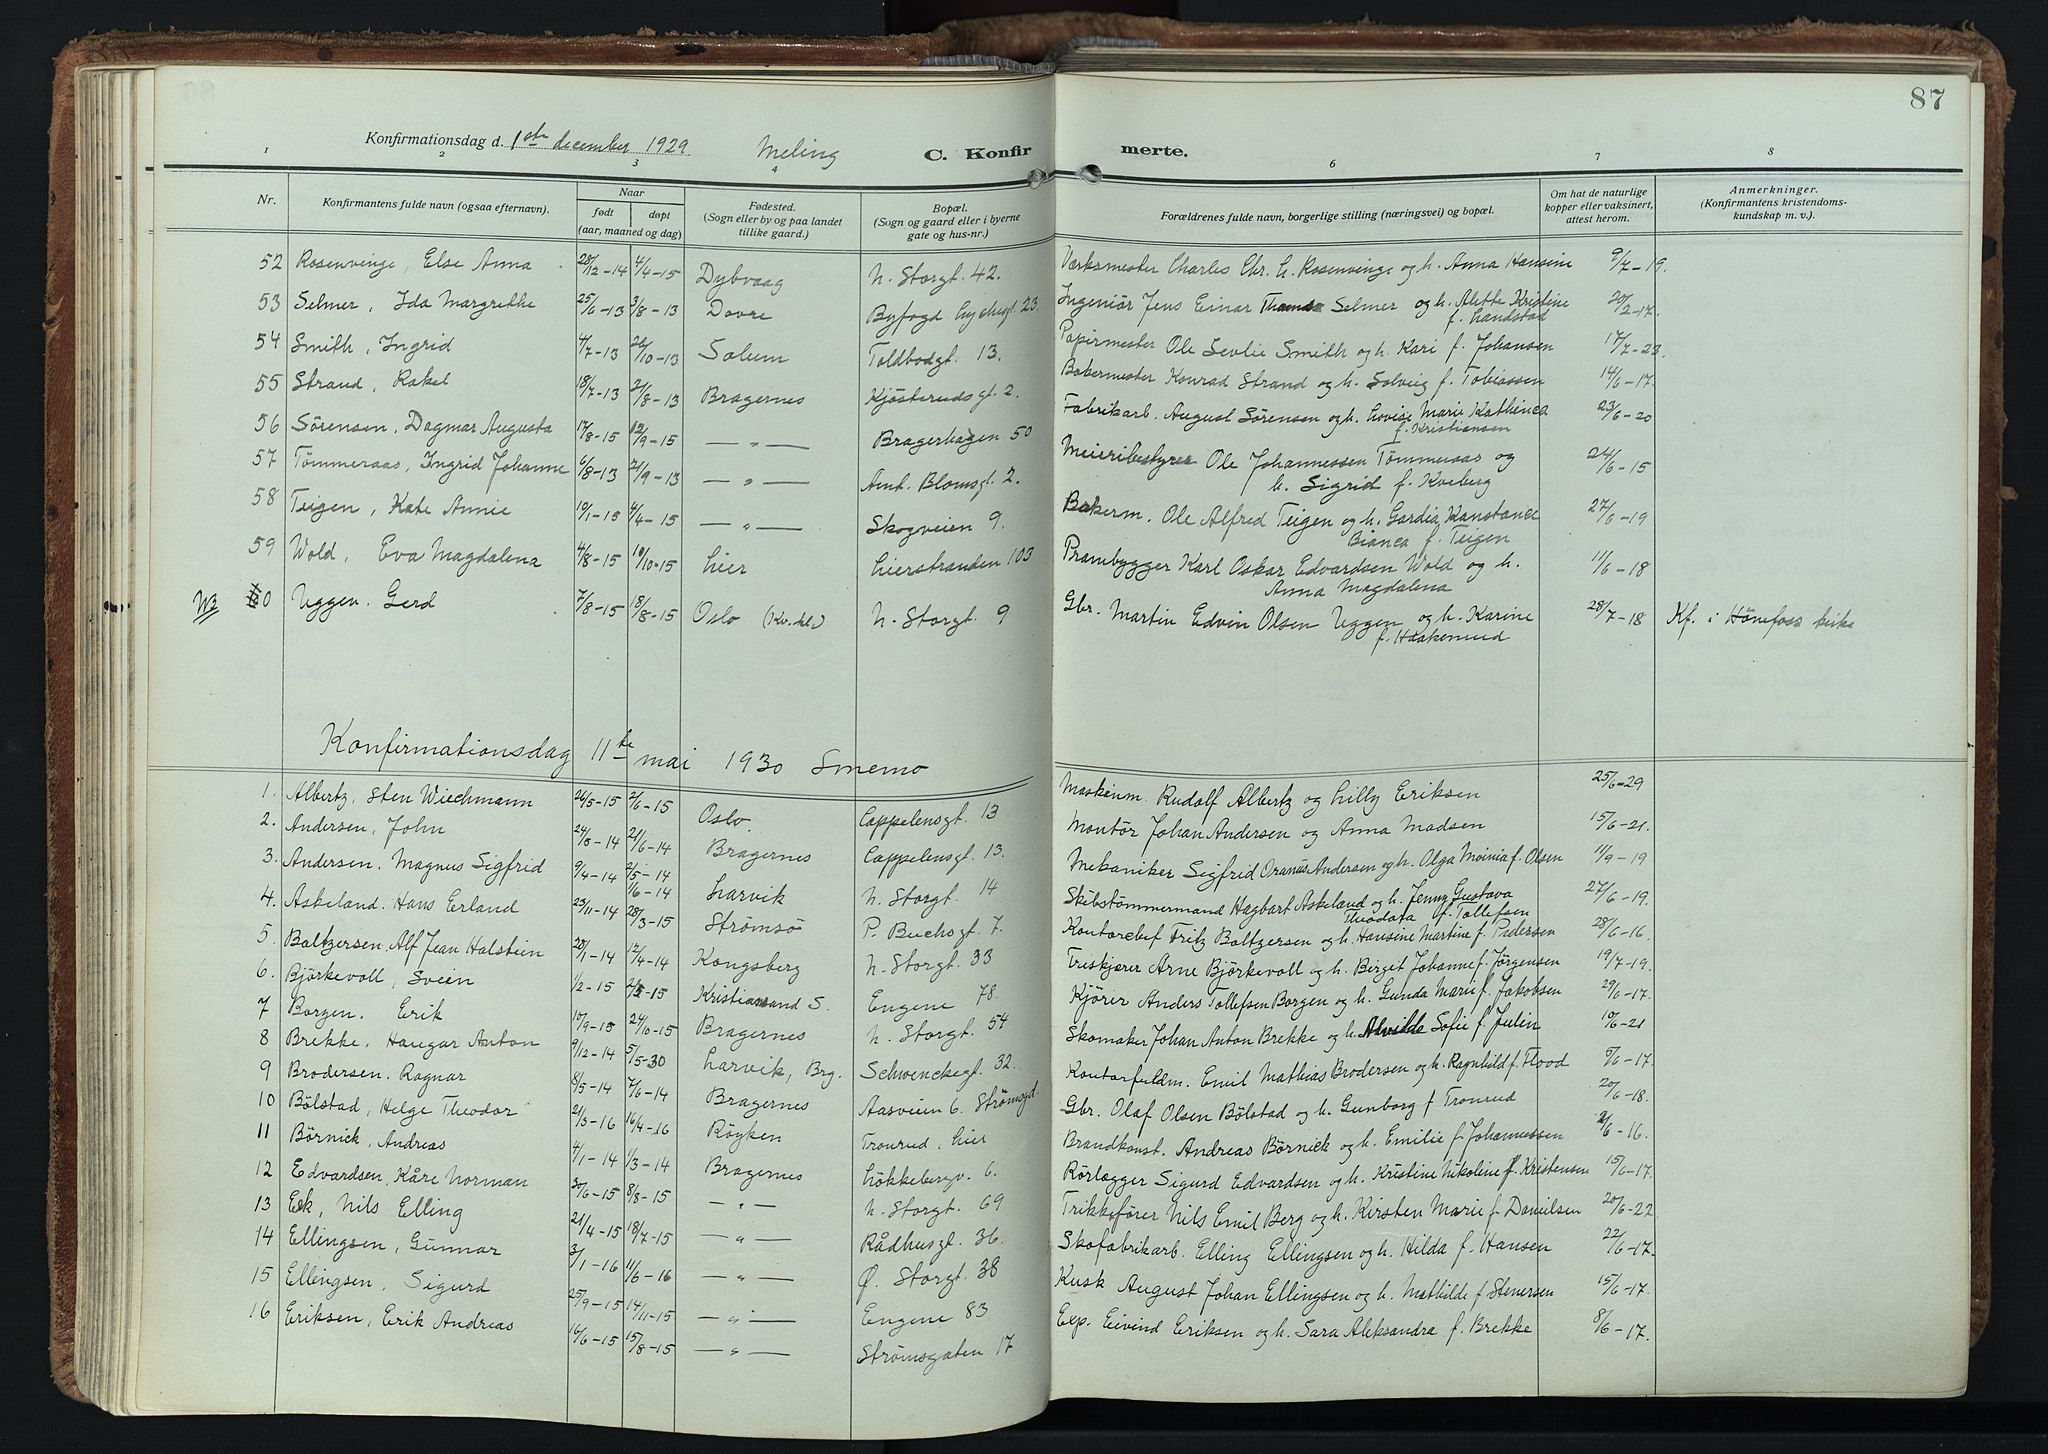 87
Konfirmationsdag d. 1ste december 1929 Meling C. Konfirmerte.
1 2 3 4 6 7 8
Nr. Konfirmantens fulde navn (ogsaa efternavn). Naar født døpt (aar, maaned og dag) Fødested. (Sogn eller by og paa landet tillike gaard.) Bopæl. (Sogn og gaard eller i byerne gate og hus-nr.) Forældrenes fulde navn, borgerlige stilling (næringsvei) og bopæl. Om hat de naturlige kopper eller vaksinert, attest herom. Anmerkninger. (Konfirmantens kristendomskundskap m. v.).
52 Rosenvinge, Else Anna 28/12-14 4/4-15 Dybvaag N. Storgt. 42. Værksmester Charles Chr. h. Rosenvinge og h. Anna Hansine 9/7-19.
53 Selmer, Ida Margrethe 25/6-13 3/8-13 Dovre Byfogd Lychesgt. 23. Ingeniør Jens Einar Selmer og h. Alette Kristine f. Landstad 20/2-17.
54 Smith, Ingrid 4/7-13 26/10-13 Solum Toldbodgt. 13. Papirmester Ole Sevlie Smith og h. Kari f. Johansen 17/7-23.
55 Strand, Rakel 18/7-13 2/8-13 Bragernes Kjøsterudsgt. 2. Bakermester Konrad Strand og h. Solveig f. Tobiassen 14/6-17.
56 Sörensen, Dagmar Augusta 17/8-15 12/9-15 — " — Bragerhagen 50 Fabrikarb. August Sørensen og h. Lovise Marie Kathinca f. Kristiansen 23/6-20
57 Tömmeraas, Ingrid Johanne 6/8-13 21/9-13 — " — Amt. Blomsgt. 2. Meieribestyrer Ole Johannessen Tømmeraas og h. Sigrid f. Kveberg 24/6-15
58 Teigen, Kate Annie 10/1-15 4/4-15 — " — Skogveien 9. Bakerm. Ole Alfred Teigen og h. Gardia Konstance Bianca f. Teigen 27/6-19
59 Wold, Eva Magdalena 4/8-15 10/10-15 Lier Lierstranden 103 Prambygger Karl Oskar Edvardsen Wold og h. Anna Magdalena 11/6-18
60 Uggen. Gerd 7/8-15 18/8-15 Oslo (Kv.kl.) N. Storgt. 9 Gbr. Martin Edvin Olsen Uggen og h. Karine f. Haakenrud 28/7-18 Kf. i Hönefoss kirke
Konfirmationsdag 11te mai 1930 Smemo
1. Albertz, Sten Wiechmann 26/5-15 2/6-15 Oslo. Cappelensgt. 13 Maskinm. Rudolf Albertz og Lilly Eriksen 25/6-29
2. Andersen, John 24/8-14 21/6-14 Bragernes Cappelensgt. 13. Montör Johan Andersen og Anna Madsen 15/6-21.
3. Andersen. Magnus Sigfrid 9/4-14 2/5-14 1/6-14 Larvik N. Storgt. 14 Mekaniker Sigfrid Oranus Andersen og h. Olga Moinia f. Olsen 11/9-19
4. Askeland. Hans Erland 23/11-14 28/3-15 Strømsö P. Buchsgt. 7. Skibstömmermand Hagbart Askeland og h. Jenny Gustava Theodata f. Tollefsen 27/6-19.
5. Baltzersen, Alf Jean Halstein 28/1-14 12/4-14 Kongsberg N. Storgt. 33 Kontorchef Fritz Baltzersen og h. Hansine Martine f. Pedersen 28/6-16.
6. Björkevoll, Svein 1/2-15 2/5-15 Kristiansand S. Engene 78. Treskjærer Arne Björkevoll og h. Birgit Johanne f. Jörgensen 19/7-19.
7 Borgen. Erik 10/9-15 24/10-15 Bragernes N. Storgt. 54 Kjörer Anders Tollefsen Borgen og h. Gunda Marie f. Jakobsen 29/6-17.
8 Brekke, Haugar Anton 9/12-14 5/5-30 Larvik, Brg. Schwenckegt. 32. Skomaker Johan Anton Brekke og h. Alvilde Sofie f. Julin 10/6-21
9 Brodersen. Ragnar 8/5-14 7/6-14 Bragernes Aasveien 6. Strömsgd. Kontorfuldm. Emil Mathias Brodersen og h. Ragnhild f. Flood 5/6-17.
10 Bölstad, Helge Theodor 21/3-16 16/4-16 Röyken Tronrud. Lier Gbr. Olaf Olsen Bölstad og h. Gunborg f Tronrud 20/6-18.
11 Börnick. Andreas 4/1-14 1/3-14 Bragernes Lökkebergv. 6. Brandkonst. Andreas Börnick og h. Emilie f. Johannessen 2/6-16.
12 Edvardsen, Kåre Norman 30/6-15 8/8-15 — " — N. Storgt. 69 Rörlægger Sigurd Edvardsen og h. Kristine Nikoline f. Kristensen 15/6-17.
13 Eek, Nils Elling 21/4-15 18/7-15 — " — Rådhusgt. 36. Trikkefører Nils Emil Berg og h. Kirsten Marie f. Danielsen 20/6-22
14 Ellingsen, Gunnar 3/1-16 11/6-16 — " — Ø. Storgt. 38 Skofabrikarb. Elling Ellingsen og h. Hilda f. Hansen 22/6-17.
15 Ellingsen, Sigurd 25/9-15 14/11-15 — " — Engene 83 Kusk August Johan Ellingsen og h. Mathilde f Stenersen 15/6-17.
16 Eriksen, Erik Andreas 16/6-15 15/8-15 — " — Strømsgaten 17 Exp. Eivind Eriksen og h. Sara Aleksandra f. Brekke 8/6-17.